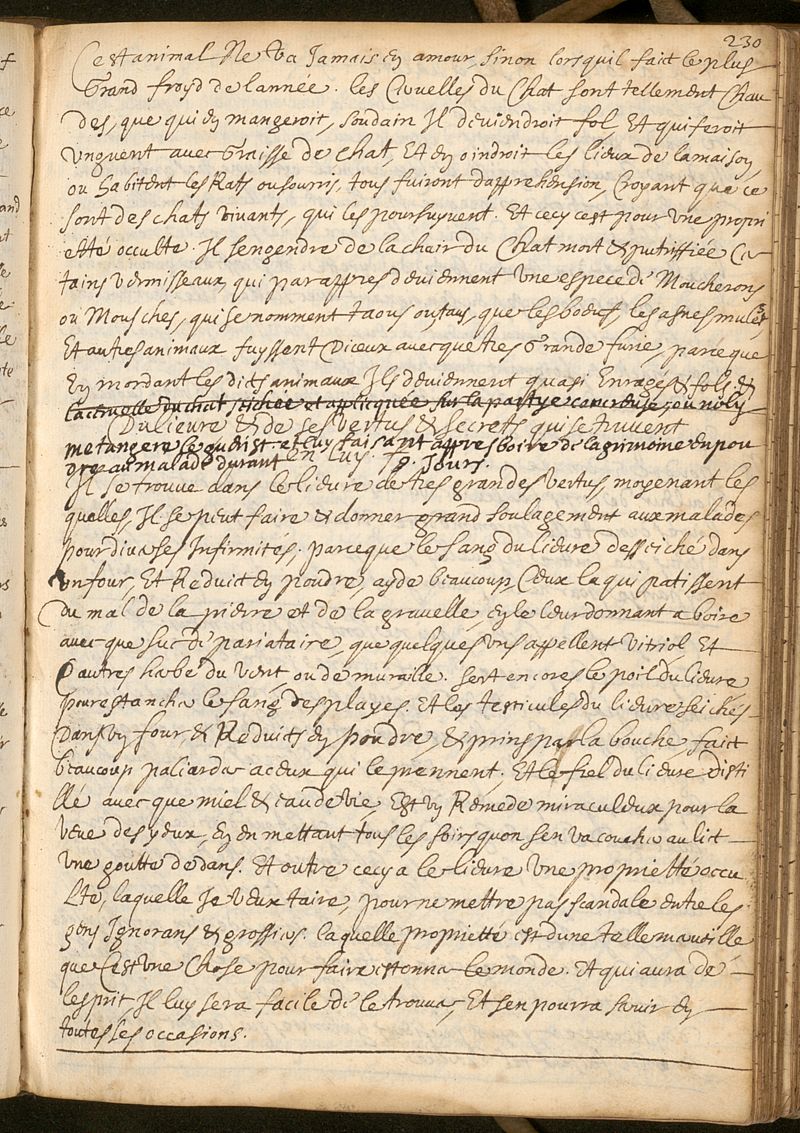 230
Cest animal Ne va Jamais en amour, sinon lorsquil faict le plus
Grand froyd de lannée. les Ceruelles du Chat sont tellement Chau
des, que qui en mangeroit, soudain Il deuiendroit fol, Et qui feroit
vnguent auec Graisse de chat, Et en oindroit les lieux de la maison,
ou habitent les Rats ou souris, tous fuiront dapprehension, Croyant que ce
sont des chats viuants, qui les poursuyuent. Et cecy cest pour vne propri
etté occulte. Il sengendre de la chair du Chat mort & putriffiée Cer
tains vermisseaux, qui par appres deuiennent vne espece de Moucherons
ou Mousches, qui se nomment taous ou taus, que les boeufs, les asnes mulets,
Et autres animaux fuyssent Diceux auecque tres Grande furie, parceque
En mordant les dicts animaux Ils deuiennent quasi Enrages & fols. &
la ceruelle du chat seichée et applicquée sur la partye cancreuse, ou noly
Du lieure & de ses vertus & secrets qui se treuuent
metangere le guerist. et luy faisant appres boire de lagrimoine en pou
en luy.
dre au malade durant 40. Jours.
Il se trouue dans le lieure de tres grandes vertus, moyenant les
quelles, Il se peut faire & donner grand soulagement aux malades
pour diuerses Infirmités. parceque le sang du lieure desseiché dans
vn four, Et Reduict en poudre, ayde beaucoup, Ceux la qui patissent
Du mal de la pierre et de la grauelle, en le leur donnant a boire
auecque suc de pariataire, que quelques vns appellent Vitriol Et
Dautres herbe du vent, ou de muraille. Sert encores le poil du lieure
pour estancher le sang des playes. Et les testicules du lieure seichés
Dans vn four & Reduicts en poudre, & prins par la bouche, faict
beaucoup paliarder a ceux qui le prennent. Et le fiel du lieure Disti
llé auecque miel & eau de vie, Est vn Remede miraculeux pour la
veue des yeux, En en mettant tous les soirs quon sen va coucher au lict
vne goutte dedans. Et outre cecy a le lieure vne proprietté occu
Lte, laquelle Je veux taire, pour ne mettre pas scandale entre les
gens Ignorans & grossiers. laquelle proprietté est dune telle merueille
que Cest vne Chose pour faire estonner le monde. Et qui aura de
lesprit Il luy sera facile de le trouuer, Et sen pourra seruir en
toutes les occasions.